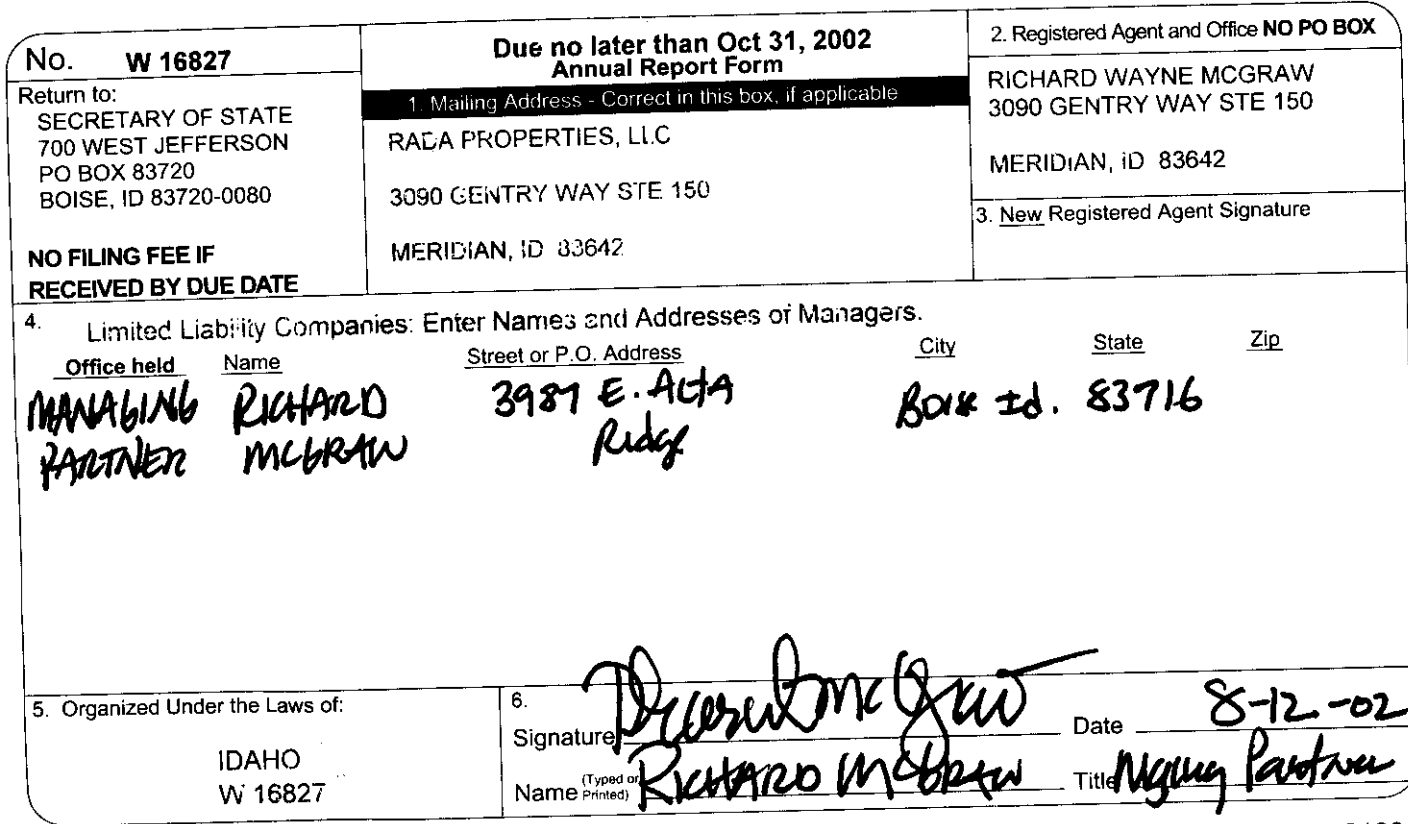 No. W 16827
Return to:
SECRETARY OF STATE
700 WEST JEFFERSON
PO BOX 83720
BOISE, ID 83720-0080
NO FILING FEE IF
RECEIVED BY DUE DATE
Due no later than Oct 31, 2002
Annual Report Form
1. Mailing Address - Correct in this box, if applicable
RADA PROPERTIES, LLC
3090 GENTRY WAY STE 150
MERIDIAN, ID 83642
2. Registered Agent and Office NO PO BOX
RICHARD WAYNE MCGRAW
3090 GENTRY WAY STE 150
MERIDIAN, ID 83642
3. New Registered Agent Signature
4. Limited Liability Companies: Enter Names and Addresses of Managers.
Office held Name Street or P.O. Address City State Zip
MANAGING RICHARD 3987 E. Alta Boise Id. 83716
PARTNER MCGRAW Ridge
5. Organized Under the Laws of:
IDAHO
W 16827
6.
Signature Richard McGraw Date 8-12-02
Name (Typed or Printed) RICHARD MCGRAW Title Mging Partner